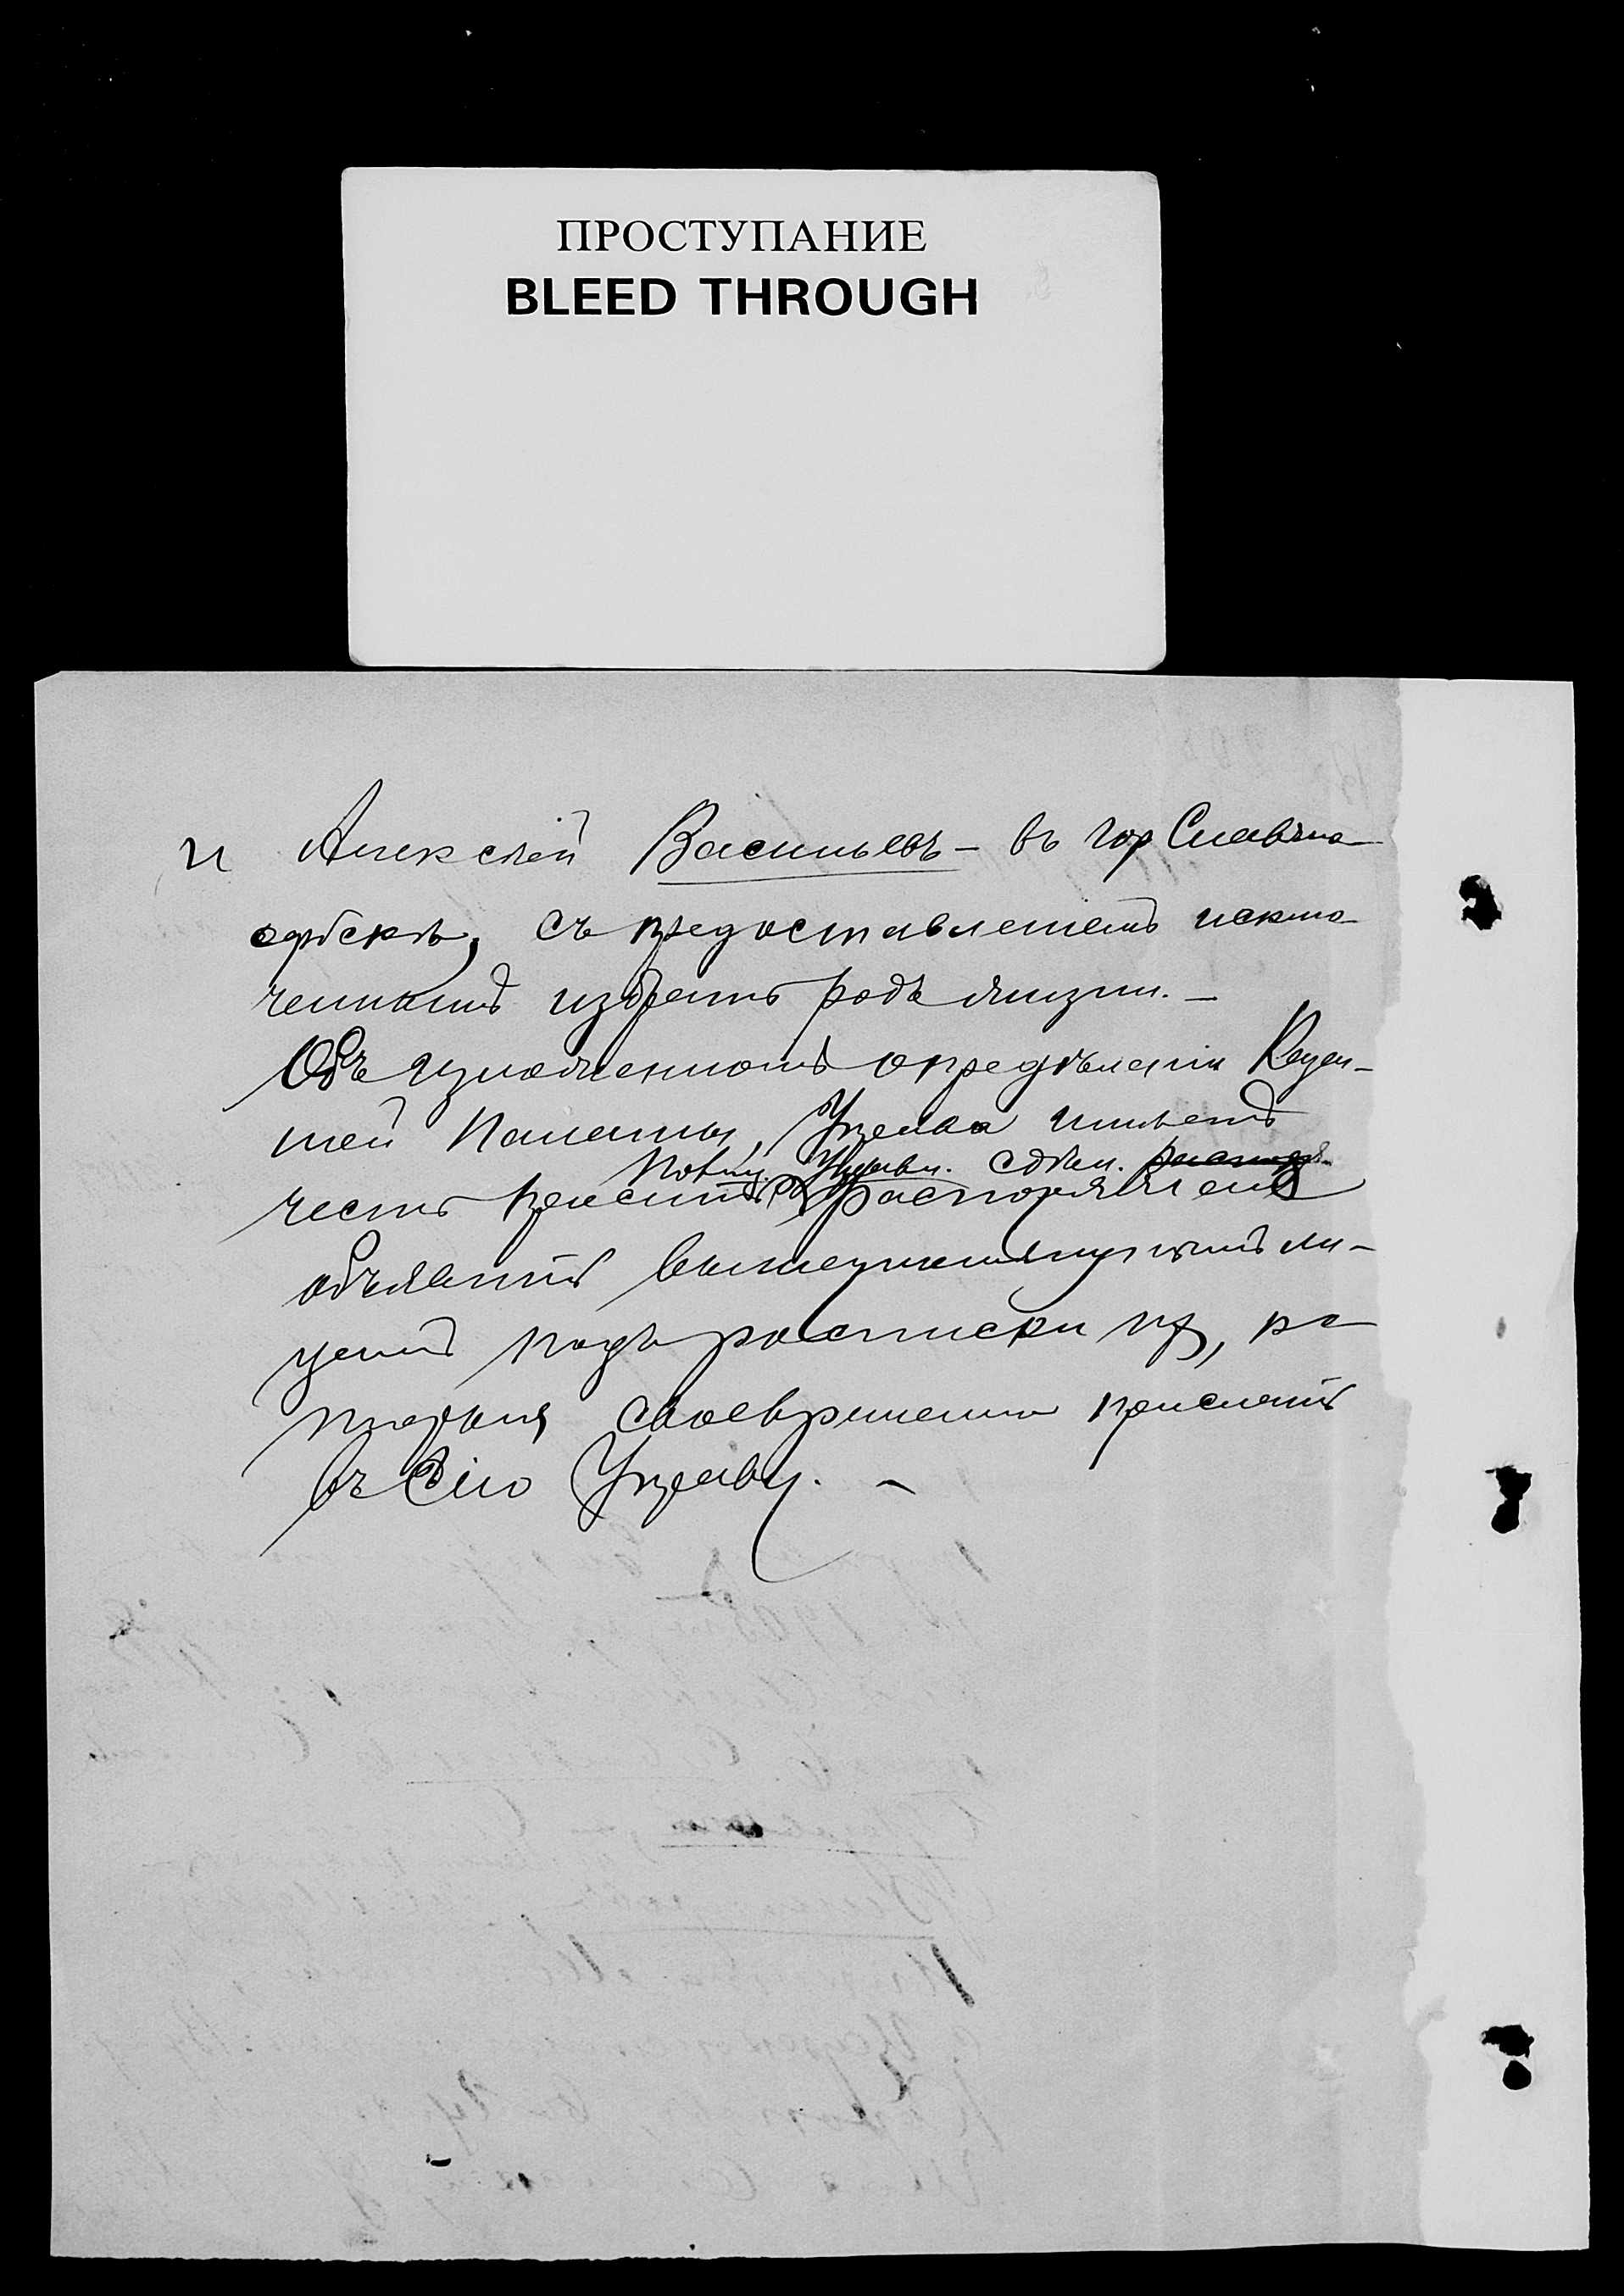 ПРОСТУПАНИЕ
BLEED THROUGH
и Алексѣй Васильевъ – въ гор Славяно
сербскѣ, съ предоставленіемъ исклю
ченнымъ избрать родъ жизни. –
Объ изложенномъ опредѣленіи Казен-
ной Палаты, Управа имѣетъ
Управ. сдѣл.
честь просить распоряженія
объявить вышеупомянутымъ ли-
цамъ подъ росписки ихъ, ко
торыя своевременно прислать
въ Сію Управу. –